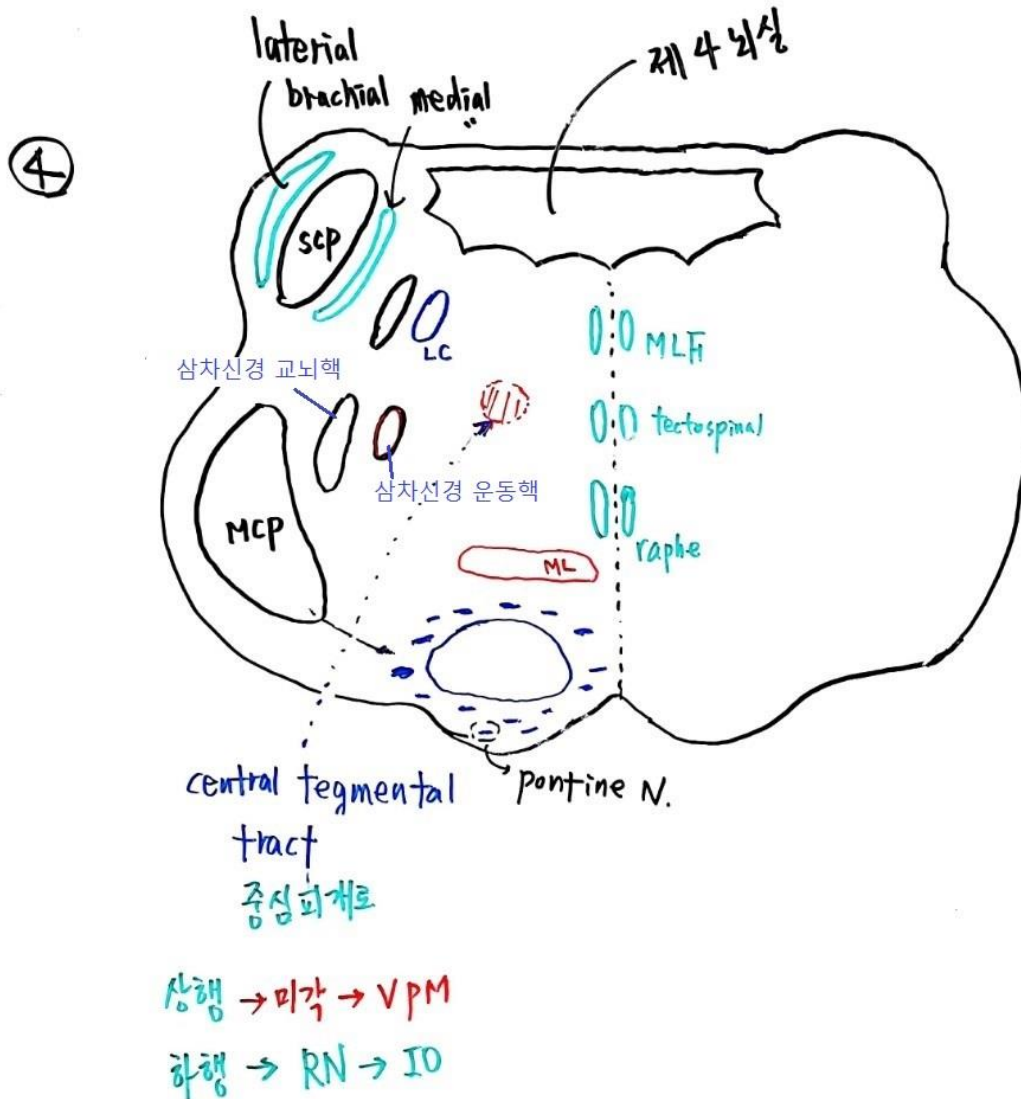 laterial
brachial medial
제 4 뇌실
④
SCP
LC
MLF
삼차신경 교뇌핵
tectospinal
삼차선경 운동핵
MCP
raphe
ML
central tegmental
tract
pontine N.
중심피개로
상행 → 미각 → VPM
하행 → RN → IO